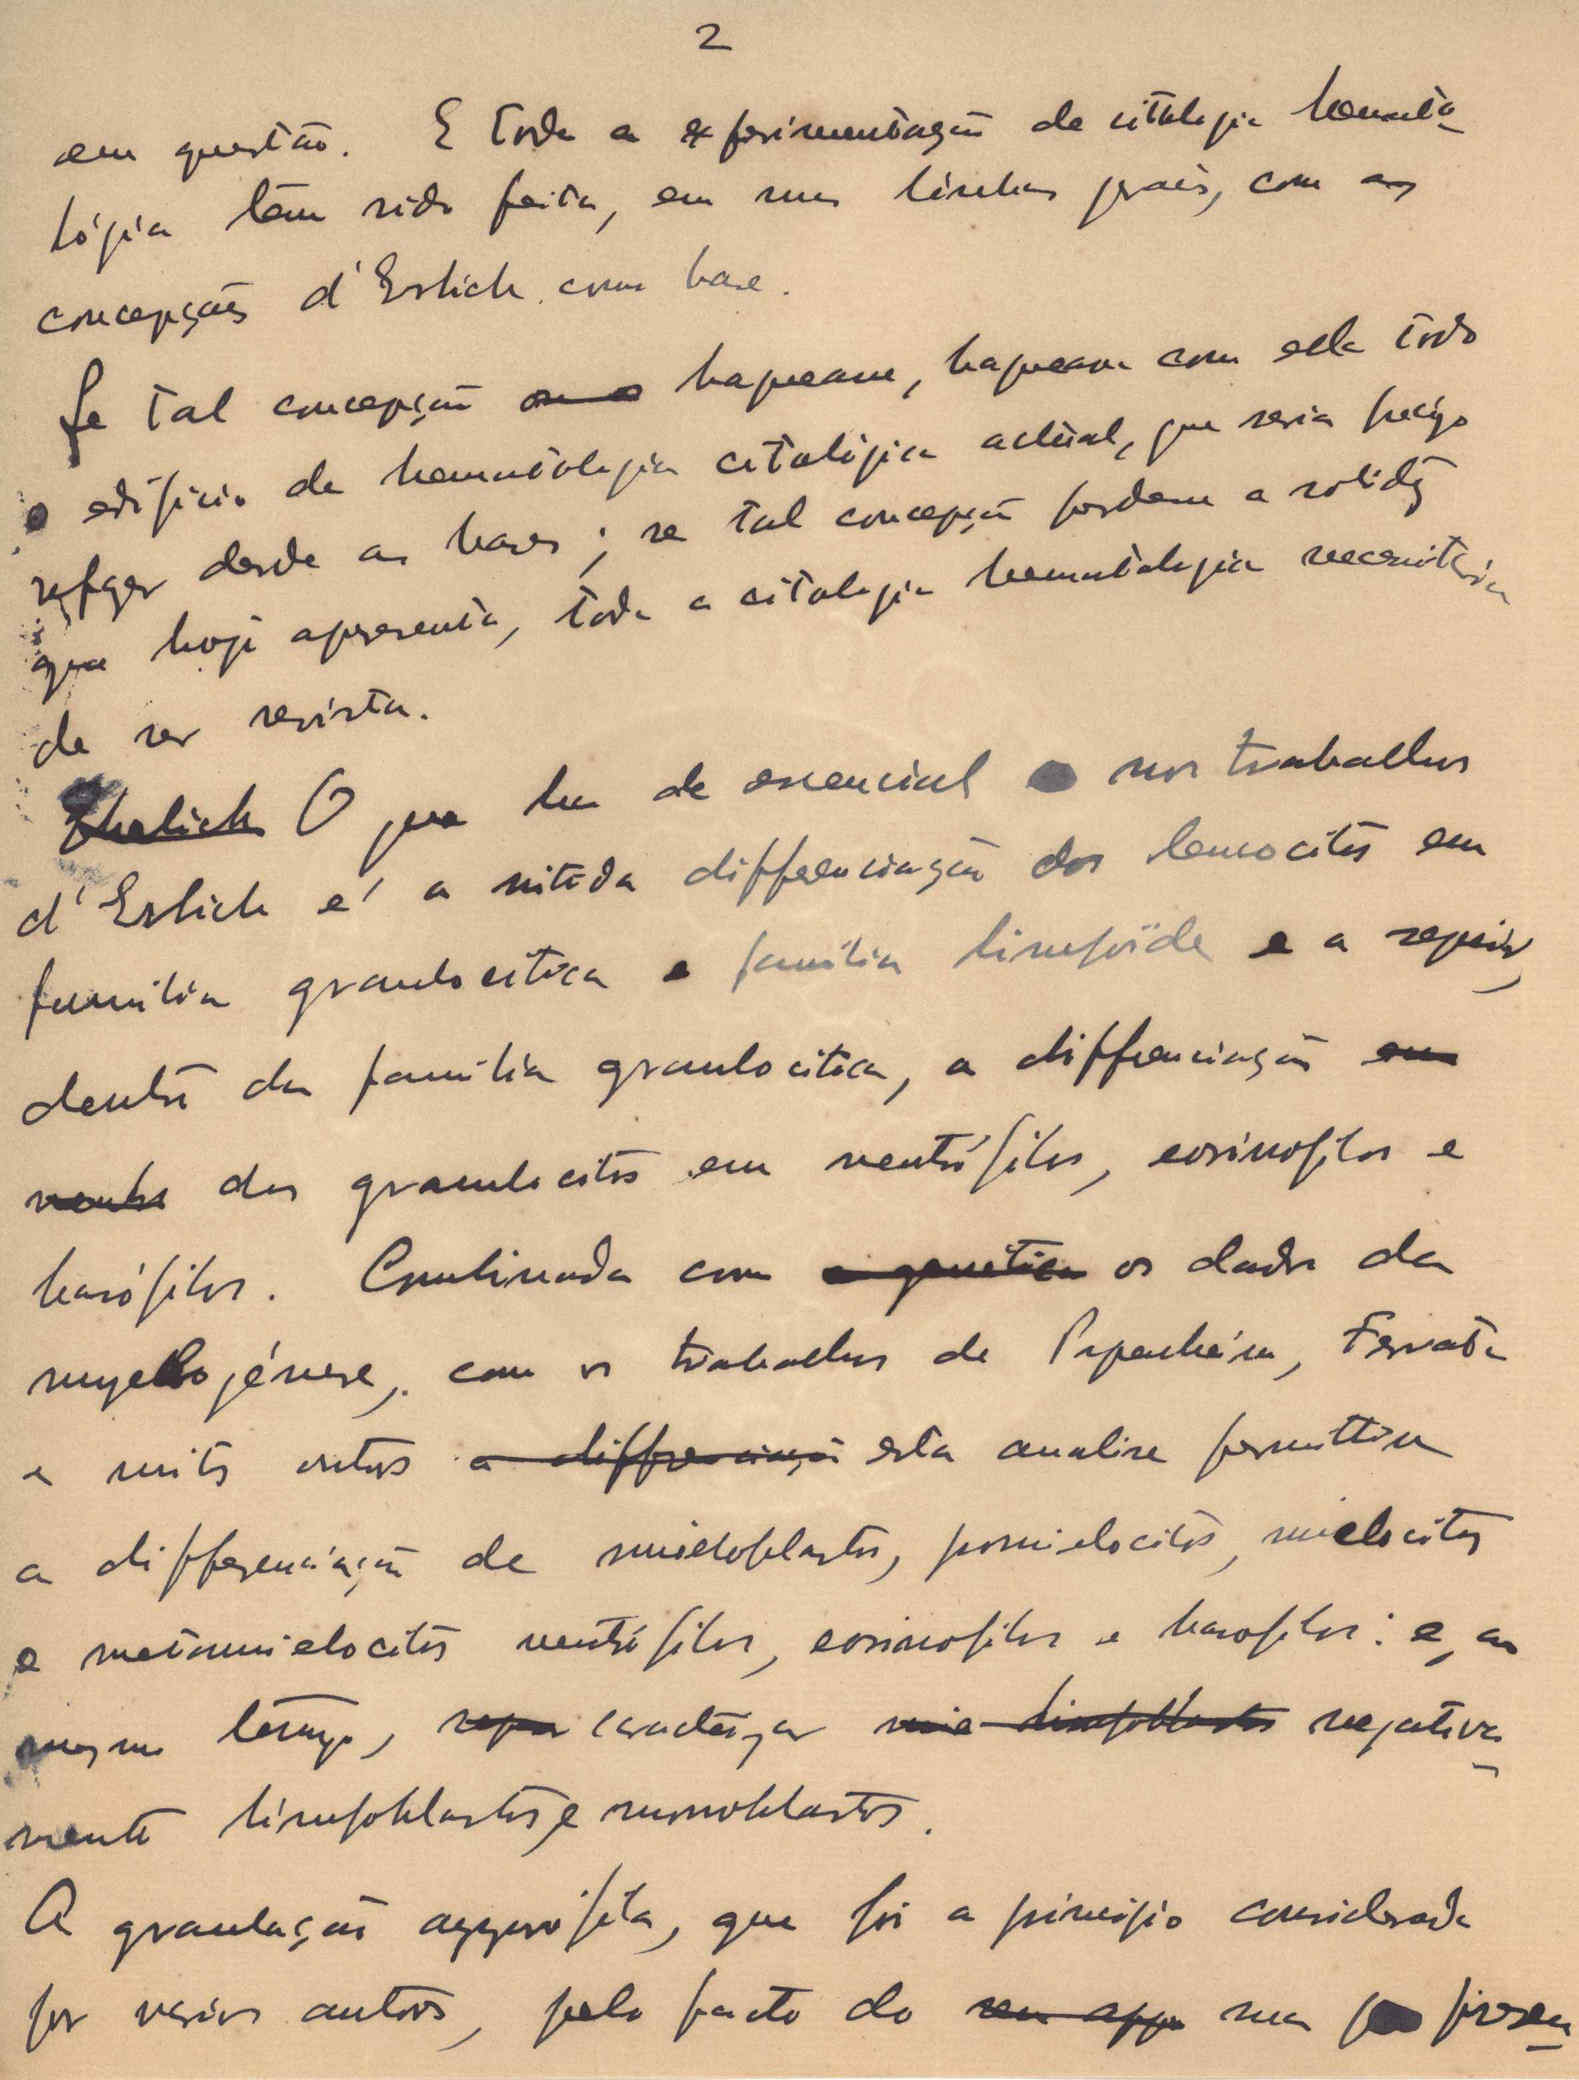 2
em questão. E toda a experimentação de citologia hemato-
lógica tem sido feita, em suas linhas gerais, com as
concepções d'Erlich como base.
Se tal concepção baqueasse, baqueava com ella todo
o edificio da hematologia citológica actual, que seria preciso
refazer desde as bases; se tal concepção perdesse a solidez
que hoje apresenta, toda a citologia hematologica necessitaria
de ser revista.
Ehrlich O que ha de essencial nos trabalhos
d'Erlich é a nitida differenciação dos leucocitos em
familia granulocitica e familia linfoïde e a seguir,
dentro da familia granulocitica, a differenciação em
neutro dos granulocitos em neutrófilos, eosinofilos e
basófilos. Combinada com a genética os dados da
myelogénese, com os trabalhos de Papenheim, Ferrata
e muitos outros a differenciação esta analise permittiu
a differenciação de mieloblastos, promielocitos, mielocitos
e metamielocitos neutrófilos, eosinofilos e basofilos: e, ao
mesmo tempo, separ caracterizar mie linfoblastos negativa-
mente linfoblastos e monoblastos.
A granulação azurófila, que foi a principio considerada
por varios autores, pelo facto do seu app sua presen-